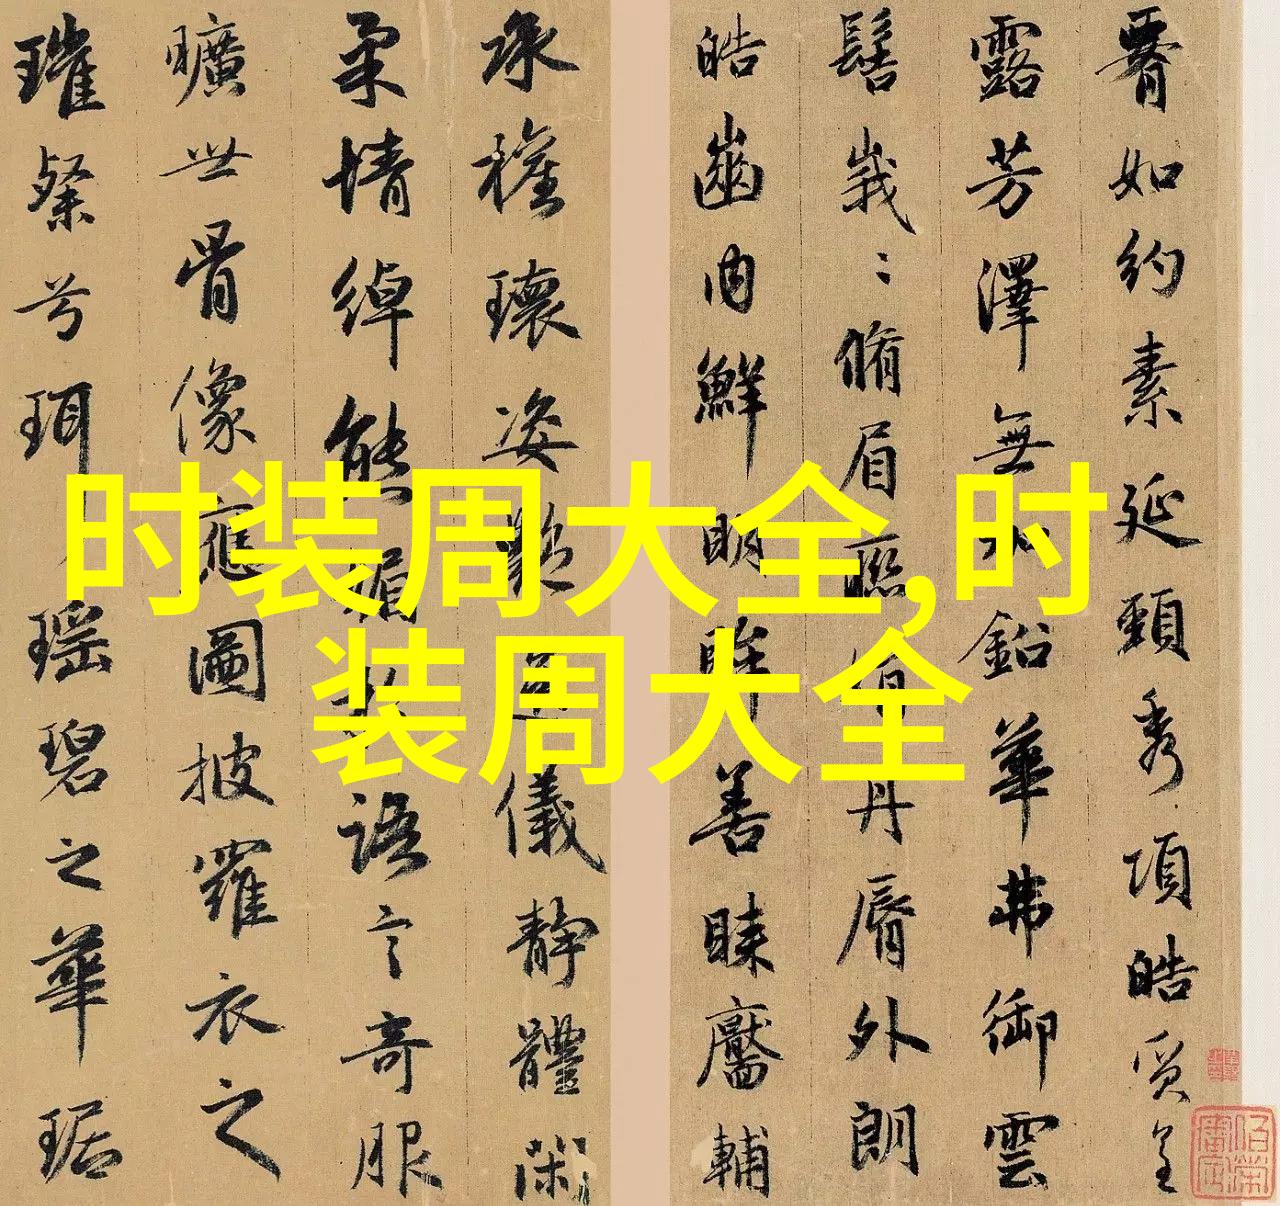 时装周大全,时
装周大全
如約素延頸秀項皓質呈
露芳澤無加鉛華弗御雲
髻峩〻脩眉聯娟丹脣外朗
皓齒内鮮明眸善睞靨輔
承權瓌姿艷逸儀靜體閑
柔情綽態媚於語言奇服
曠世骨像應圖披羅衣之
璀粲兮珥瑤碧之華琚